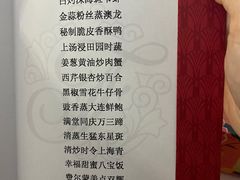 白灼深海斑节虾
金蒜粉丝蒸澳龙
秘制脆皮香酥鸭
上汤浸田园时蔬
姜葱黄油炒肉蟹
西芹银杏炒百合
黑椒雪花牛仔骨
豉香蒸大连鲜鲍
满堂同庆万三蹄
清蒸生猛东星斑
清炒时令上海青
幸福甜蜜八宝饭
费尔蒙美点双辉